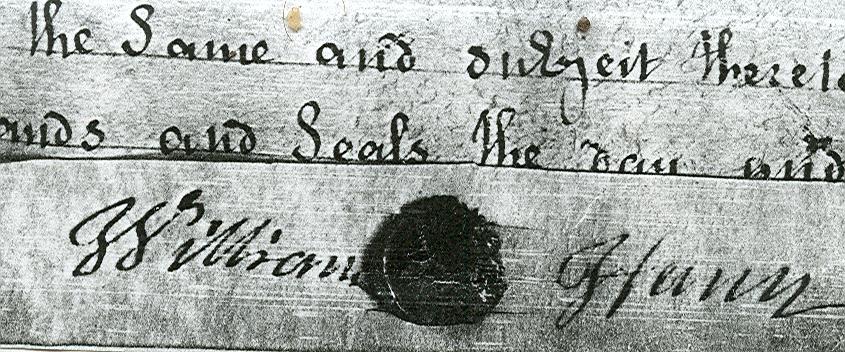 the Same and subject thereto
ands and Seals the day and
William